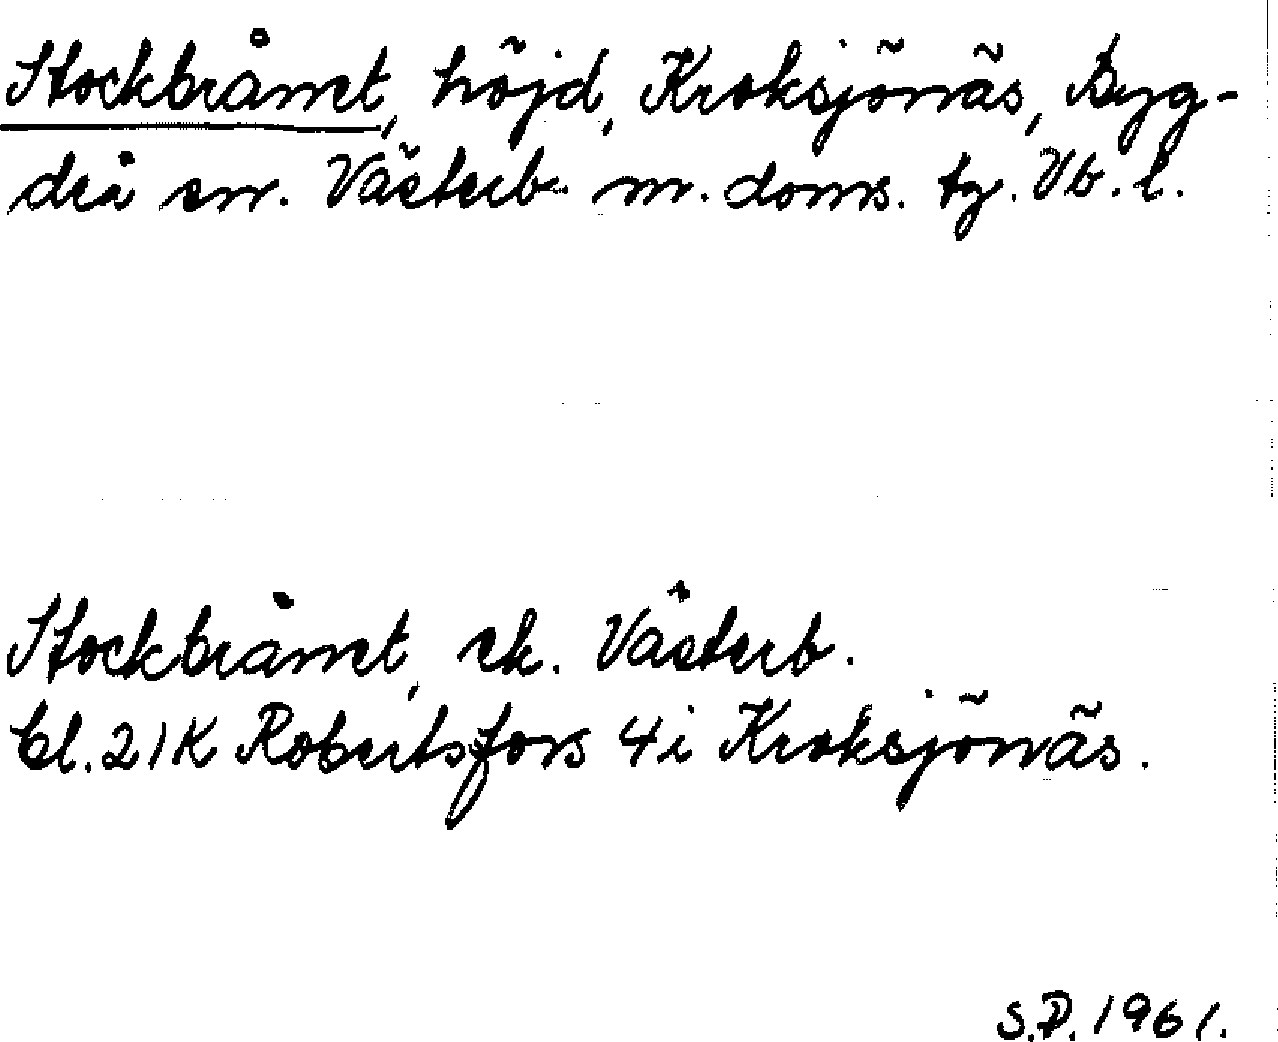 Stockbrånet, höjd, Kroksjönäs, Byg-
deå sn. Västerb. n. doms. tg. Vb. l.
Stockbrånet, ek. Västerb.
bl. 21K Robertsfors 4i Kroksjönäs.
S.P. 1961.